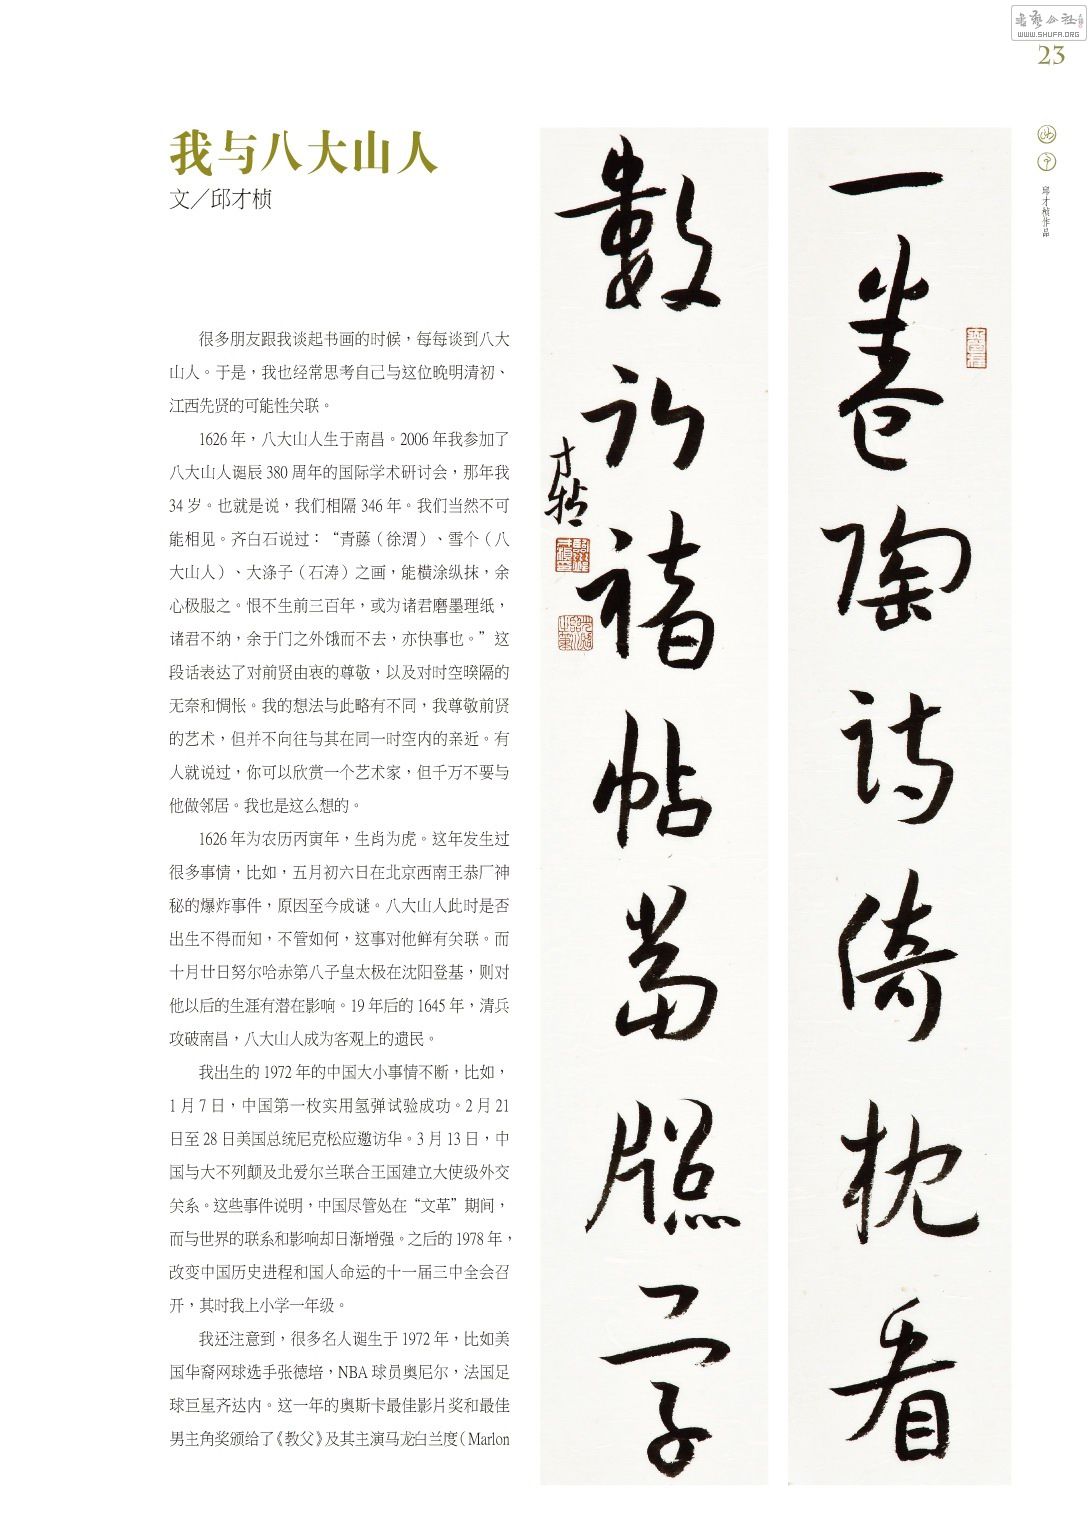 WWW.SHUFA.ORG
23
邱才桢作品
我与八大山人
文／邱才桢
很多朋友跟我谈起书画的时候，每每谈到八大
山人。于是，我也经常思考自己与这位晚明清初、
江西先贤的可能性关联。
1626 年，八大山人生于南昌。2006 年我参加了
八大山人诞辰 380 周年的国际学术研讨会，那年我
34 岁。也就是说，我们相隔 346 年。我们当然不可
能相见。齐白石说过：“青藤（徐渭）、雪个（八
大山人）、大涤子（石涛）之画，能横涂纵抹，余
心极服之。恨不生前三百年，或为诸君磨墨理纸，
诸君不纳，余于门之外饿而不去，亦快事也。”这
段话表达了对前贤由衷的尊敬，以及对时空暌隔的
无奈和惆怅。我的想法与此略有不同，我尊敬前贤
的艺术，但并不向往与其在同一时空内的亲近。有
人就说过，你可以欣赏一个艺术家，但千万不要与
他做邻居。我也是这么想的。
1626 年为农历丙寅年，生肖为虎。这年发生过
很多事情，比如，五月初六日在北京西南王恭厂神
秘的爆炸事件，原因至今成谜。八大山人此时是否
出生不得而知，不管如何，这事对他鲜有关联。而
十月廿日努尔哈赤第八子皇太极在沈阳登基，则对
他以后的生涯有潜在影响。19 年后的 1645 年，清兵
攻破南昌，八大山人成为客观上的遗民。
我出生的 1972 年的中国大小事情不断，比如，
1 月 7 日，中国第一枚实用氢弹试验成功。2 月 21
日至 28 日美国总统尼克松应邀访华。3 月 13 日，中
国与大不列颠及北爱尔兰联合王国建立大使级外交
关系。这些事件说明，中国尽管处在“文革”期间，
而与世界的联系和影响却日渐增强。之后的 1978 年，
改变中国历史进程和国人命运的十一届三中全会召
开，其时我上小学一年级。
我还注意到，很多名人诞生于 1972 年，比如美
国华裔网球选手张德培，NBA 球员奥尼尔，法国足
球巨星齐达内。这一年的奥斯卡最佳影片奖和最佳
男主角奖颁给了《教父》及其主演马龙白兰度（Marlon
一卷陶诗倚枕看
數行褚帖當臨字
才桢